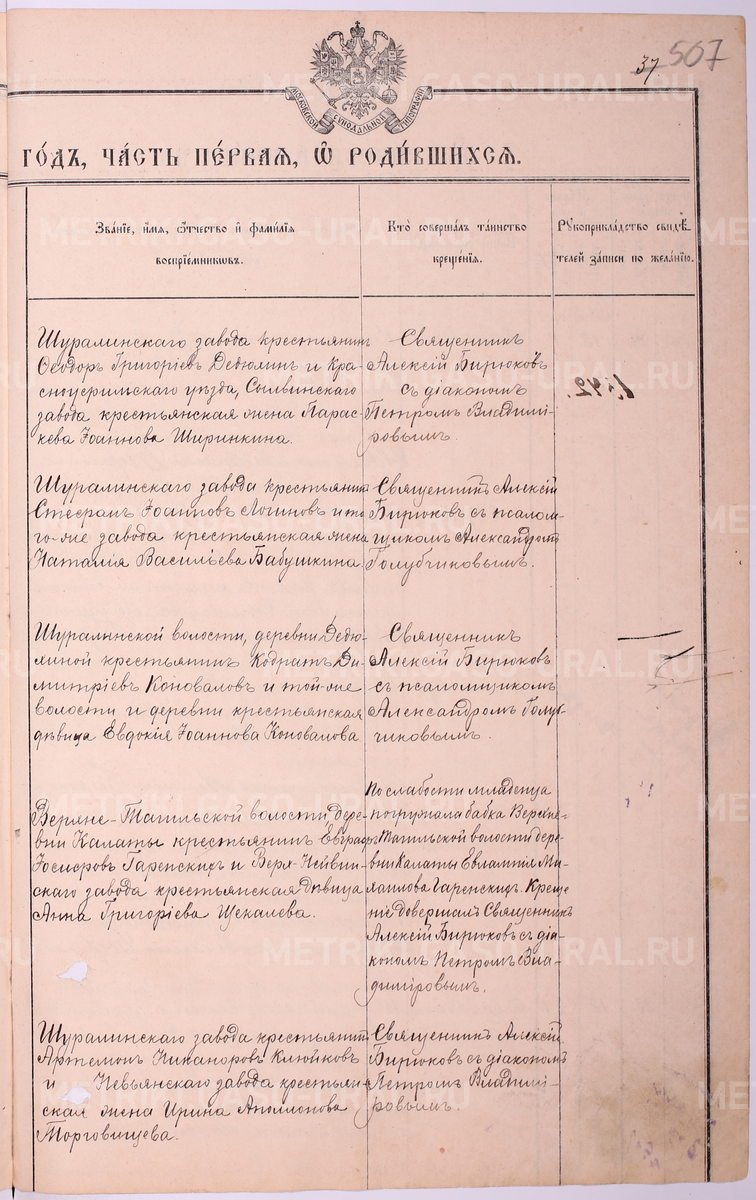 37 507
МОСКОВСКОЙ СУНОДАЛЬНОЙ ТИПОГРАФІИ
ГО́ДЪ, ЧА́СТЬ ПЕ́РВАЯ, Ѽ РОДИ́ВШИХСЯ.
Зва́нїе, и́мѧ, ѻ҆́тчество и҆ фами́лїѧ
воспрїе́мникωвъ.
Кто̀ соверша́лъ та́инство
креще́нїѧ.
Рꙋкоприкла́дство свидѣ́-
телей за́писи по жела́нїю.
Шуралинскаго завода крестьянинъ
Ѳеодоръ Григоріевъ Дедюлинъ и Кра-
сноуфимскаго уѣзда, Сылвинскаго
завода крестьянская жена Парас-
кева Іоаннова Ширинкина.
Священникъ
Алексій Бирюковъ
съ діакономъ
Петромъ Владимі-
ровымъ.
Шуралинскаго завода крестьянинъ
Стефанъ Іоанновъ Логиновъ и то-
го-же завода крестьянская жена
Наталія Васильева Бабушкина.
Священникъ Алексій
Бирюковъ съ псалом-
щикомъ Александромъ
Голубчиковымъ.
Шуралинской волости, деревни Дедю-
линой крестьянинъ Кодратъ Ди-
митріевъ Коноваловъ и той-же
волости и деревни крестьянская
дѣвица Евдокія Іоаннова Коновалова
Священникъ
Алексій Бирюковъ
съ псаломщикомъ
Александромъ Голуб-
чиковымъ.
Верхне-Тагильской волости, дере-
вни Калаты крестьянинъ Евграфъ
Іосифовъ Гаренскихъ и Верх-Нейвин-
скаго завода крестьянская дѣвица
Анна Григоріева Щекалева.
По слабости младенца
погружала бабка Верхне-
Тагильской волости дере-
вни Калаты Евлампія Ми-
хаилова Гаренскихъ. Креще-
ніе довершалъ Священникъ
Алексій Бирюковъ съ діа-
кономъ Петромъ Вла-
диміровымъ.
Шуралинскаго завода крестьянинъ
Артемонъ Никаноровъ Клюйковъ
и Невьянскаго завода крестьян-
ская жена Ирина Аполлонова
Торговищева.
Священникъ Алексій
Бирюковъ съ діакономъ
Петромъ Владимі-
ровымъ.